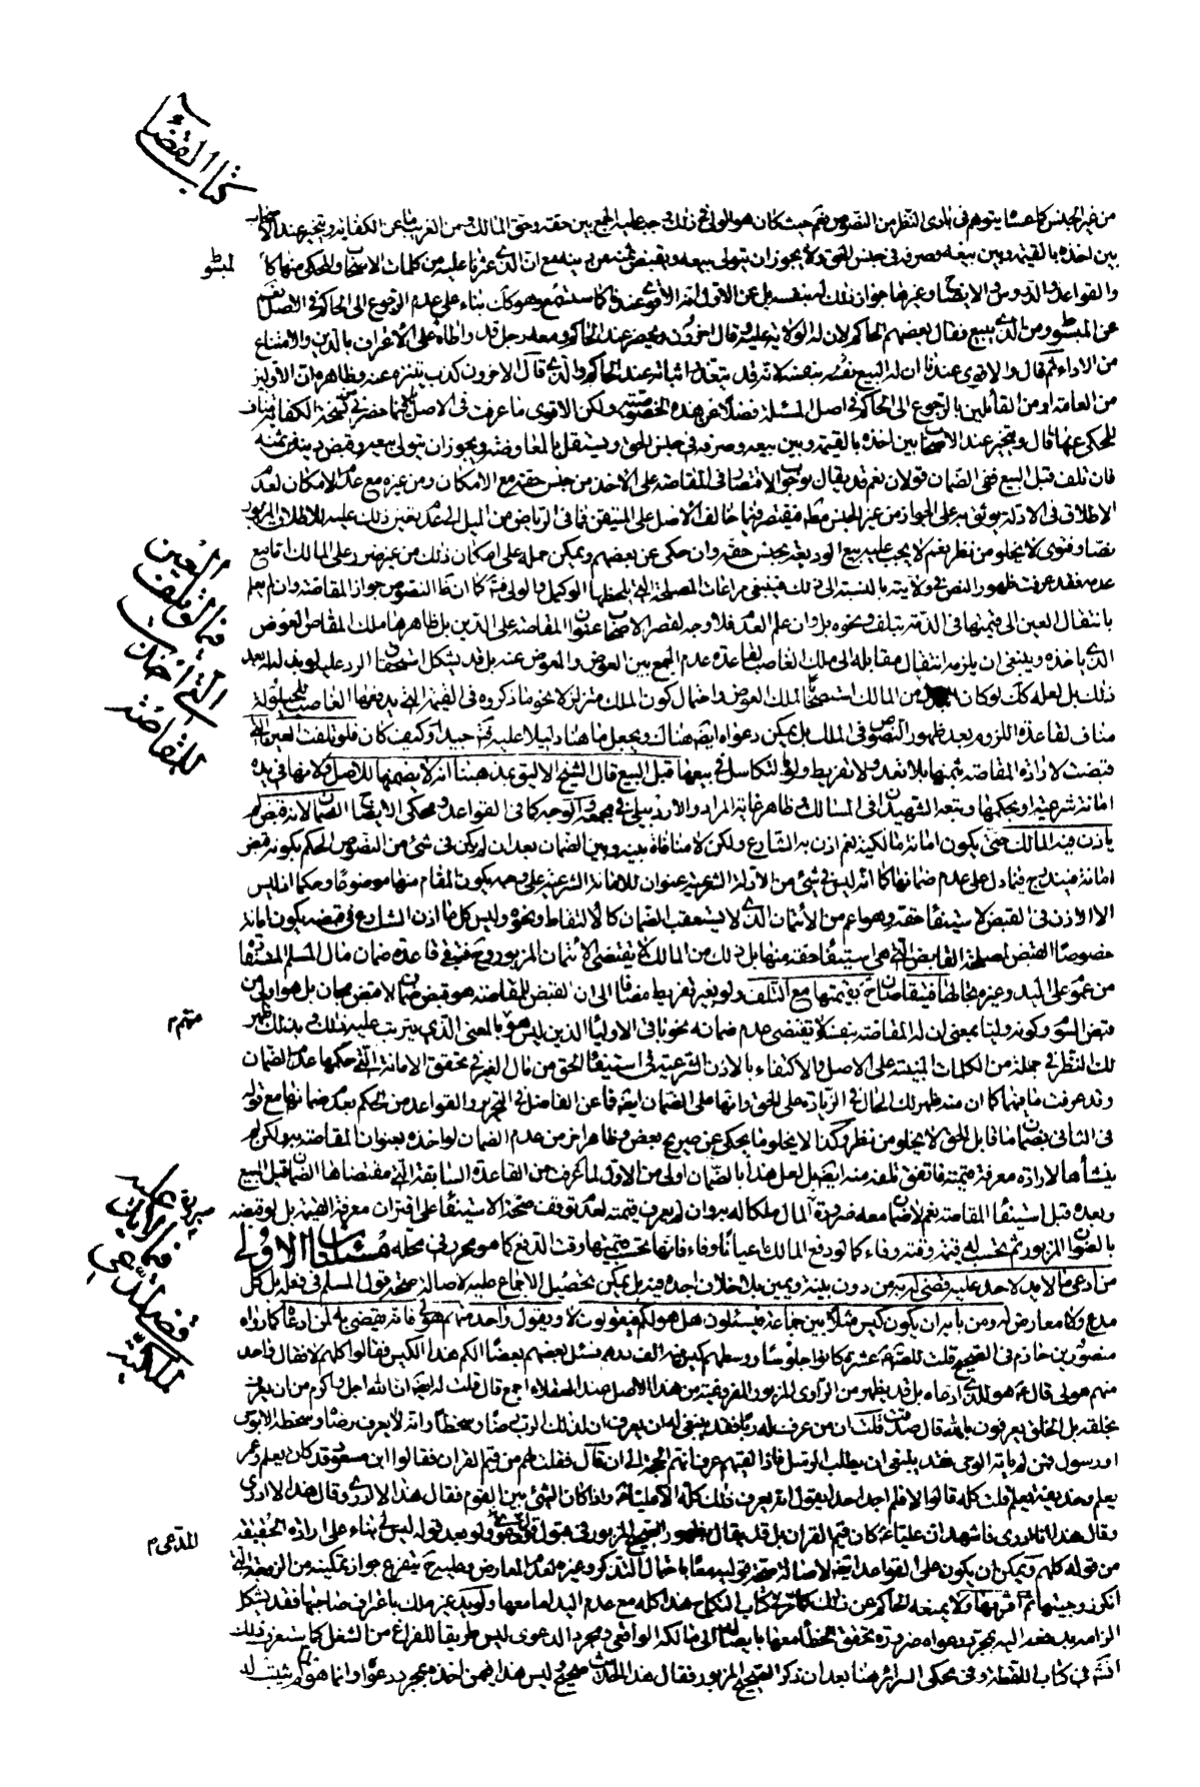 كتاب القضاء
من غير الجنس كما عساه يتوهم في بادي النظر من النصوص نعم حيث كان هو الولي في ذلك وجب عليه الجمع بين حقه وحق المالك عن الكفاية ويتخير عند الأصحاب
بين اخذه بالقيمة وبين بيعه وصرفه في جنس الحق ولا يجوز ان يتولى بيعه ويقبض دينه مع ان الذي عثرنا عليه من كلمات الاصحاب والمحكي منها كا
لمبسوط
والقواعد والدروس والايضاح وغيرها جواز ذلك له بنفسه بل عن الاولى وهو كك بناء على عدم الرجوع الى الحاكم في الاصل نعم
عن المبسوط ومن الذي يبيع فقال بعضهم الحاكم لان له الولاية عليه وقال اخرون ويحضر عند الحاكم ومعه رجل قد واطاه على الاعتراف بالدين والامتناع
من الاداء ثم قال والاقوى عندنا ان له البيع بنفسه لانه قد يتعذر اثباته عند الحاكم والذي قال الاخرون كذب يتنزه عنه وظاهره ان الاولين
من العامة او من القائلين بالرجوع الى الحاكم في اصل المسئلة فضلا عن هذه ولكن الاقوى ما عرفت في الاصل نسخة الكفاية مناف
للمحكي عنها قال ويتخير عند الاصحاب بين اخذه بالقيمة وبين بيعه وصرفه في جنس الحق ويستقل بالمعاوضة ويجوز ان يتولى بيعه وقبض دينه من ثمنه
فان تلف قبل البيع ففي الضمان قولان نعم قد يقال بوجوب الاقتصار في المقاصة على الاخذ من جنس حقه مع الامكان ومن غيره مع عدم الامكان لعدم
الاطلاق في الادلة يوثق به على الجواز من غير الجنس مط فيقتصر فيما خالف الاصل على المتيقن فما في الرياض من الميل الى عدم تعين ذلك عليه للاطلاق المزبور
نصا وفتوى لا يخلو من نظر نعم لا يجب عليه بيع الوديعة بجنس حقه وان حكي عن بعضهم ويمكن حمله على امكان ذلك من غير ضرر على المالك اما مع
عدمه فقد عرفت ظهور النص في ولايته بالنسبة الى ذلك فينبغي مراعات المصلحة التي يلحظها الوكيل والولي كما ان ظ النصوص جواز المقاصة وان لم يعلم
بانتقال العين الى قيمتها في الذمة بتلف ونحوه بل وان علم العدم فلا وجه لقصر الاصحاب عنوان المقاصة على الدين بل ظاهرها ملك المقاص العوض
الذي ياخذه وينبغي ان يلزمه انتقال مقابله الى ملك الغاصب لقاعدة عدم الجمع بين العوض والمعوض عنه بل قد يشكل استحقاق الرد عليه لو بذله بعد
ذلك بل لعله كك لو كان من المالك استصحابا لملك العوض واحتمال كون الملك متزلزلا نحو ما ذكروه في القيمة التي يدفعها الغاصب للحيلولة
مناف لقاعدة اللزوم بعد ظهور النصوص في الملك بل يمكن دعواه ايضا هناك ويجعل ما هنا دليلا عليه فت جيدا وكيف كان فلو تلفت العين التي
العين
فيما لو تلفت
التي أخذت
للمقاصة
قبضت لارادة المقاصة بثمنها بلا تعد ولا تفريط ولو التكاسل في بيعها قبل البيع قال الشيخ الاليق بمذهبنا انه لا يضمنها للاصل ولانها في يده
امانة شرعية او بحكمها وتبعه الشهيدان في المسالك وظاهر غاية المراد والاردبيلي في مجمعه والوجه كما في القواعد ومحكي الايضاح الضمان لانه قبض لم
ياذن فيه المالك حتى يكون امانة مالكية نعم اذن به الشارع ولكن لا منافاة بينه وبين الضمان بعد ان لم يكن في شئ من النصوص الحكم بكونه قبض
امانة فيندرج فيما دل على عدم ضمانها كما انه ليس في شئ من الادلة الشرعية عنوان للامانة الشرعية على وجه يكون المقام منها موضوعا وحكما اذ ليس
الا الاذن في القبض لاستيفاء حقه وهو اعم من الائتمان الذي لا يستعقب الضمان كالالتقاط ونحوه وليس كل ما اذن الشارع في قبضه يكون امانة
خصوصا القبض لمصلحة القابض التي هي استيفاء حقه منها بل ذلك من المالك لا يقتضي الائتمان المزبور وح فتبقى قاعدة ضمان مال المسلم المستفاد
من عموم على اليد وغيره بحالها فيتقاصان ح بقيمتها مع التلف ولو بغير تفريط مضافا الى ان القبض للمقاصة هو قبض ضمان لا قبض مجان بل هو اولى من
قبض السوم وكونه وليا بمعنى ان له المقاصة بنفسه لا تقتضي عدم ضمانه نحو باقي الاولياء الذين ليس هو بالمعنى الذي يترتب عليه ذلك وبذلك ظهر
متهم م
لك النظر في جملة من الكلمات المبنية على الاصل والاكتفاء بالاذن الشرعية في استيفاء الحق من مال الغير في تحقق الامانة التي حكمها عدم الضمان
وقد عرفت ما فيها كما ان منه ظهر لك الحال في الزيادة على الحق وانها على الضمان ايضا فما عن الفاضل في التحرير والقواعد من الحكم بعدم ضمانها مع قوله
في الثاني بضمان ما قابل الحق لا يخلو من نظر وكذا لا يخلو ما يحكى عن صريح بعض وظاهر اخر من عدم الضمان لو اخذه بعنوان المقاصة به ولكن لم
ينشأها لارادة معرفة قيمته فاتفق تلفه منه ايضا بل لعل هذا بالضمان اولى من الاول لما عرفت من القاعدة السابقة التي مقتضاها الضمان قبل البيع
وبعده قبل استيفاء المقاصة نعم لا ضمان معه ضرورة المال ملكا له به وان لم يعرف قيمته لعدم توقف صحة الاستيفاء على اقتران معرفة القيمة بل لو قبضه
صيرورة
بالعنوان المزبور ثم بحسب له في قيمته وقته وفاء كما لو دفع المالك اعيانا وفاء فانها تحتسب بقيمتها وقت الدفع كما هو محرر في محله مسئلتان الاولى
من ادعى ما لا يد لاحد عليه قضي له به من دون بينة ويمين بلا خلاف اجده فيه بل يمكن تحصيل الاجماع عليه لاصالة صحة قول المسلم في فعله بل كل
فيما لا يد عليه
قضى لمدعي
للكيس
مدع ولا معارض له ومن بابه ان يكون كيس مثلا بين جماعة فيسئلون هل هو لكم فيقولون لا ويقول واحد منهم هو لي فانه يقضى به لمن ادعاه كما رواه
منصور بن حازم في الصحيح قلت للصادق ع عشرة كانوا جلوسا ووسطهم كيس فيه الف درهم فسئل بعضهم بعضا الكم هذا الكيس فقالوا كلهم لا فقال واحد
منهم هو لي قال ع هو للذي ادعاه بل قد يظهر من الراوي المزبور المفروغية من هذا الاصل عند العقلاء اجمع قال قلت له ايضا ان الله اجل واكرم من ان يعرف
بخلقه بل الخلق يعرفون بالله قال صدقت قلت ان من عرف ان له ربا فقد ينبغي له ان يعرف ان لذلك الرب رضا وسخطا وانه لا يعرف رضاه وسخطه الا بوحي
او رسول فمن لم ياته الوحي فقد ينبغي ان يطلب الرسل فاذا لقيهم عرف انهم الحجة الى ان قال فقلت لهم من قيم القران فقالوا ابن مسعود قد كان يعلم وعمر
يعلم وحذيفة يعلم قلت كله قالوا لا فلم اجد احدا يقول انه يعرف ذلك كله الا عليا ع واذا كان الشئ بين القوم فقال هذا لا ادري وقال هذا لا ادري
وقال هذا انا ادري فاشهد ان عليا ع كان قيم القران بل قد يقال بظهور الصحيح المزبور في قبول دعواه ولو بعد قوله ليس لي بناء على ارادة الحقيقة
المدعى م
من قوله كلهم ويمكن ان يكون على القواعد ايضا لاصالة صحة قوليه معا باحتمال التذكر وغيره لعدم المعارض وعليه ح يتفرع جواز تمكينه من الزوجة التي
انكر زوجيتها ثم اقر بها ولا يمنعه الحاكم عن ذلك كما حرر في كتاب النكاح هذا كله مع عدم اليد اما معها ولو يد غير ملك باعتراف صاحبها فقد يشكل
الزامه بدفعه اليه بمجرد دعواه ضرورة تحقق الخطاب معها بايصاله الى مالكه الواقعي ومجرد الدعوى ليس طريقا للفراغ من الشغل كما ستعرف ذلك
انش في كتاب اللقطة وفي محكي السرائر هنا بعد ان ذكر الصحيح المزبور فقال هذا الحديث صحيح وليس هذا فيمن اخذه بمجرد دعواه وانما هو لم يثبت له